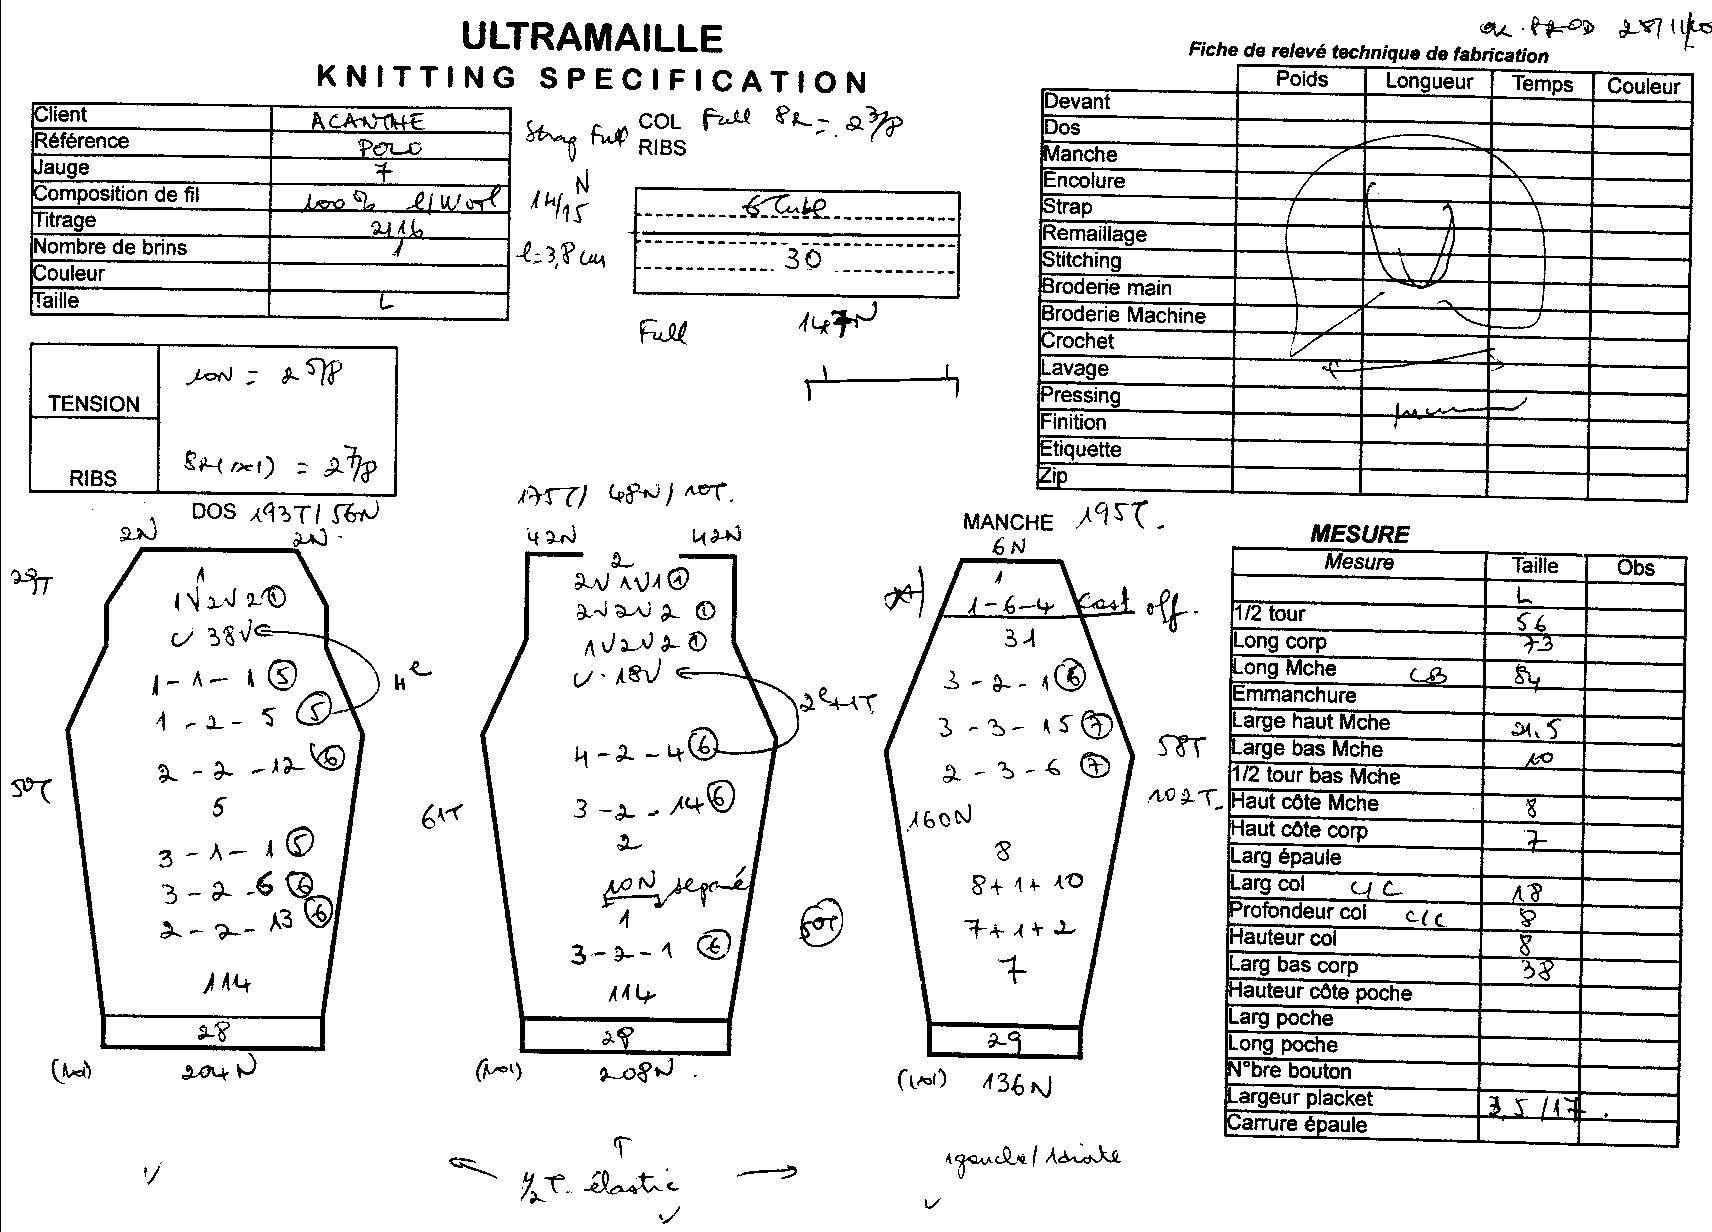 ULTRAMAILLE
KNITTING SPECIFICATION
Client ACANTHE
Référence POLO
Jauge 7
Composition de fil 100%
Titrage 2/16
Nombre de brins 1
Couleur
Taille L
Strap Full
14/15 N
l=3,8 cm
COL Full 8R = 2 3/8
RIBS
6 tube
30
Full 147N
TENSION 10N = 2 5/8
RIBS 8R(1x1) = 2 7/8
OK PROD 28/11/
Fiche de relevé technique de fabrication
Poids Longueur Temps Couleur
Devant
Dos
Manche
Encolure
Strap
Remaillage
Stitching
Broderie main
Broderie Machine
Crochet
Lavage
Pressing
Finition
Etiquette
Zip
DOS 193T/56N
2N 2N
29T
1
1V2V2①
U 38V
1-1-1⑤
1-2-5⑤
4e
2-2-12⑥
50T
5
3-1-1⑤
3-2-6⑥
2-2-13⑥
114
28
(1x1) 204N
175T/48N/10T.
42N 42N
2
2V1V1①
2V2V2①
1V2V2①
U.18V
2e+1T
4-2-4⑥
61T
3-2-14⑥
2
10N separé
1
50T
3-2-1⑥
114
28
(1x1) 208N.
MANCHE 195T.
6N
1
1-6-4 cast off.
31
3-2-1⑥
3-3-15⑦
58T
2-3-6⑦
102T
160N
8
8+1+10
7+1+2
7
29
(1x1) 136N
MESURE
Mesure Taille Obs
L
1/2 tour 56
Long corp 73
Long Mche CB 84
Emmanchure
Large haut Mche 21.5
Large bas Mche 10
1/2 tour bas Mche
Haut côte Mche 8
Haut côte corp 7
Larg épaule
Larg col C/C 18
Profondeur col C/C 8
Hauteur col 8
Larg bas corp 38
Hauteur côte poche
Larg poche
Long poche
N°bre bouton
Largeur placket 3.5/17.
Carrure épaule
1/2 T. élastic
1gauche/1droite